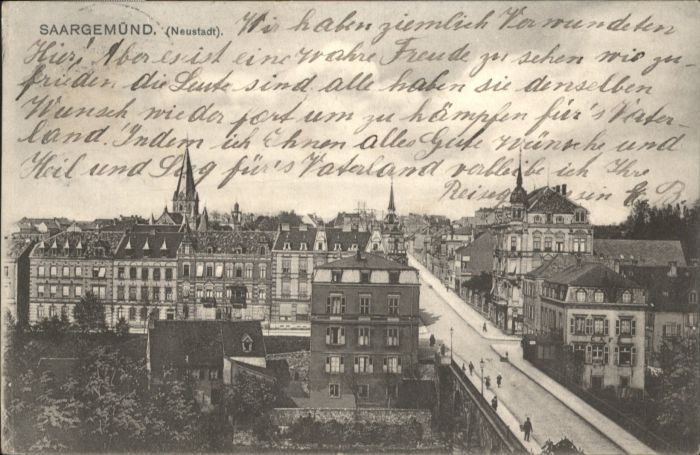 SAARGEMÜND. (Neustadt).
Wir haben ziemlich Verwundeten
Hier! Aber es ist eine wahre Freude zu sehen wie zu-
frieden die Leute sind, alle haben sie denselben
Wunsch wieder fort um zu kämpfen für's Vater-
land. Indem ich Ihnen alles Gute wünsche und
Heil und Sieg für's Vaterland verbleibe ich Ihre